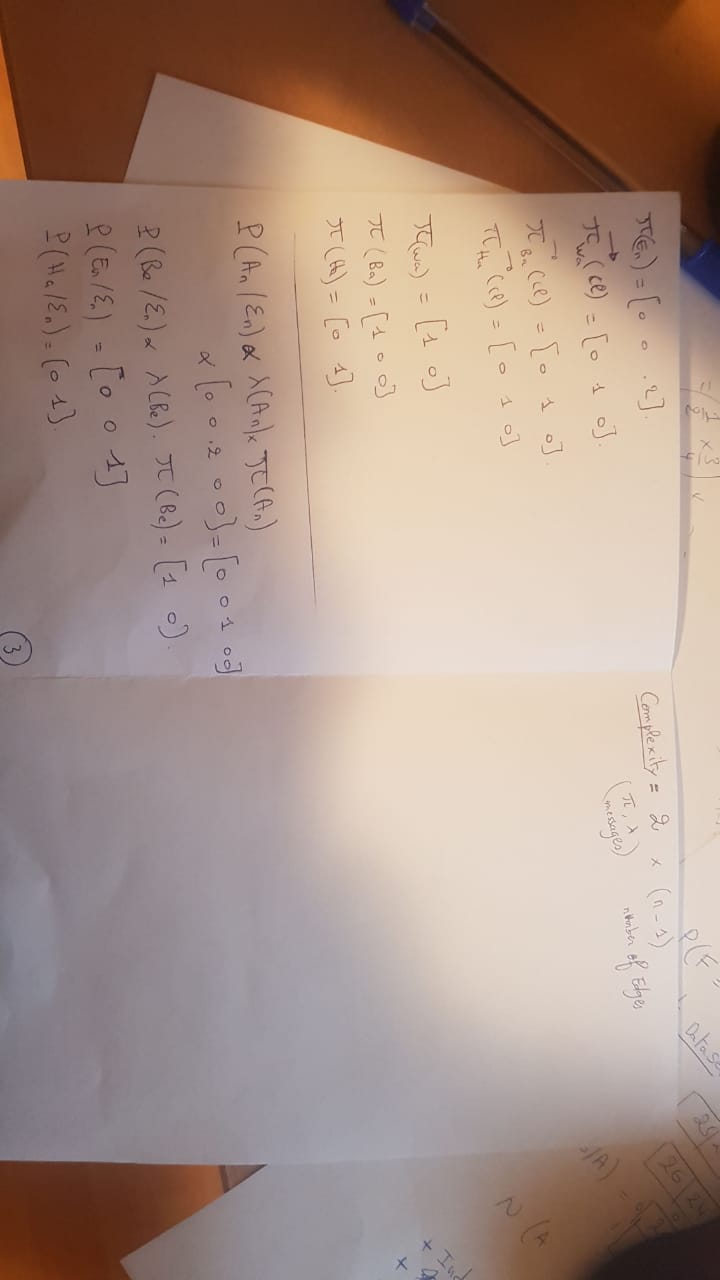 π(En) = [0 0 .2].
π⃗_Wa (Cl) = [0 1 0].
π⃗_Ba (Cl) = [0 1 0].
π⃗_Ha (Cl) = [0 1 0]
π(Wa) = [1 0]
π(Ba) = [1 0 0]
π(Ha) = [0 1].
P(An/Ɛn) ∝ λ(An) × π(An)
∝ [0 0 .2 0 0] = [0 0 1 0 0]
P(Be/Ɛn) ∝ λ(Be). π(Be) = [1 0).
P(En/Ɛn) = [0 0 1]
P(Ha/Ɛn) = [0 1].
3
Complexity = 2 × (n-1)
(π, λ messages) number of Edges
= (1/2 × 3/4)
P(F =
Dataset
25
26 24